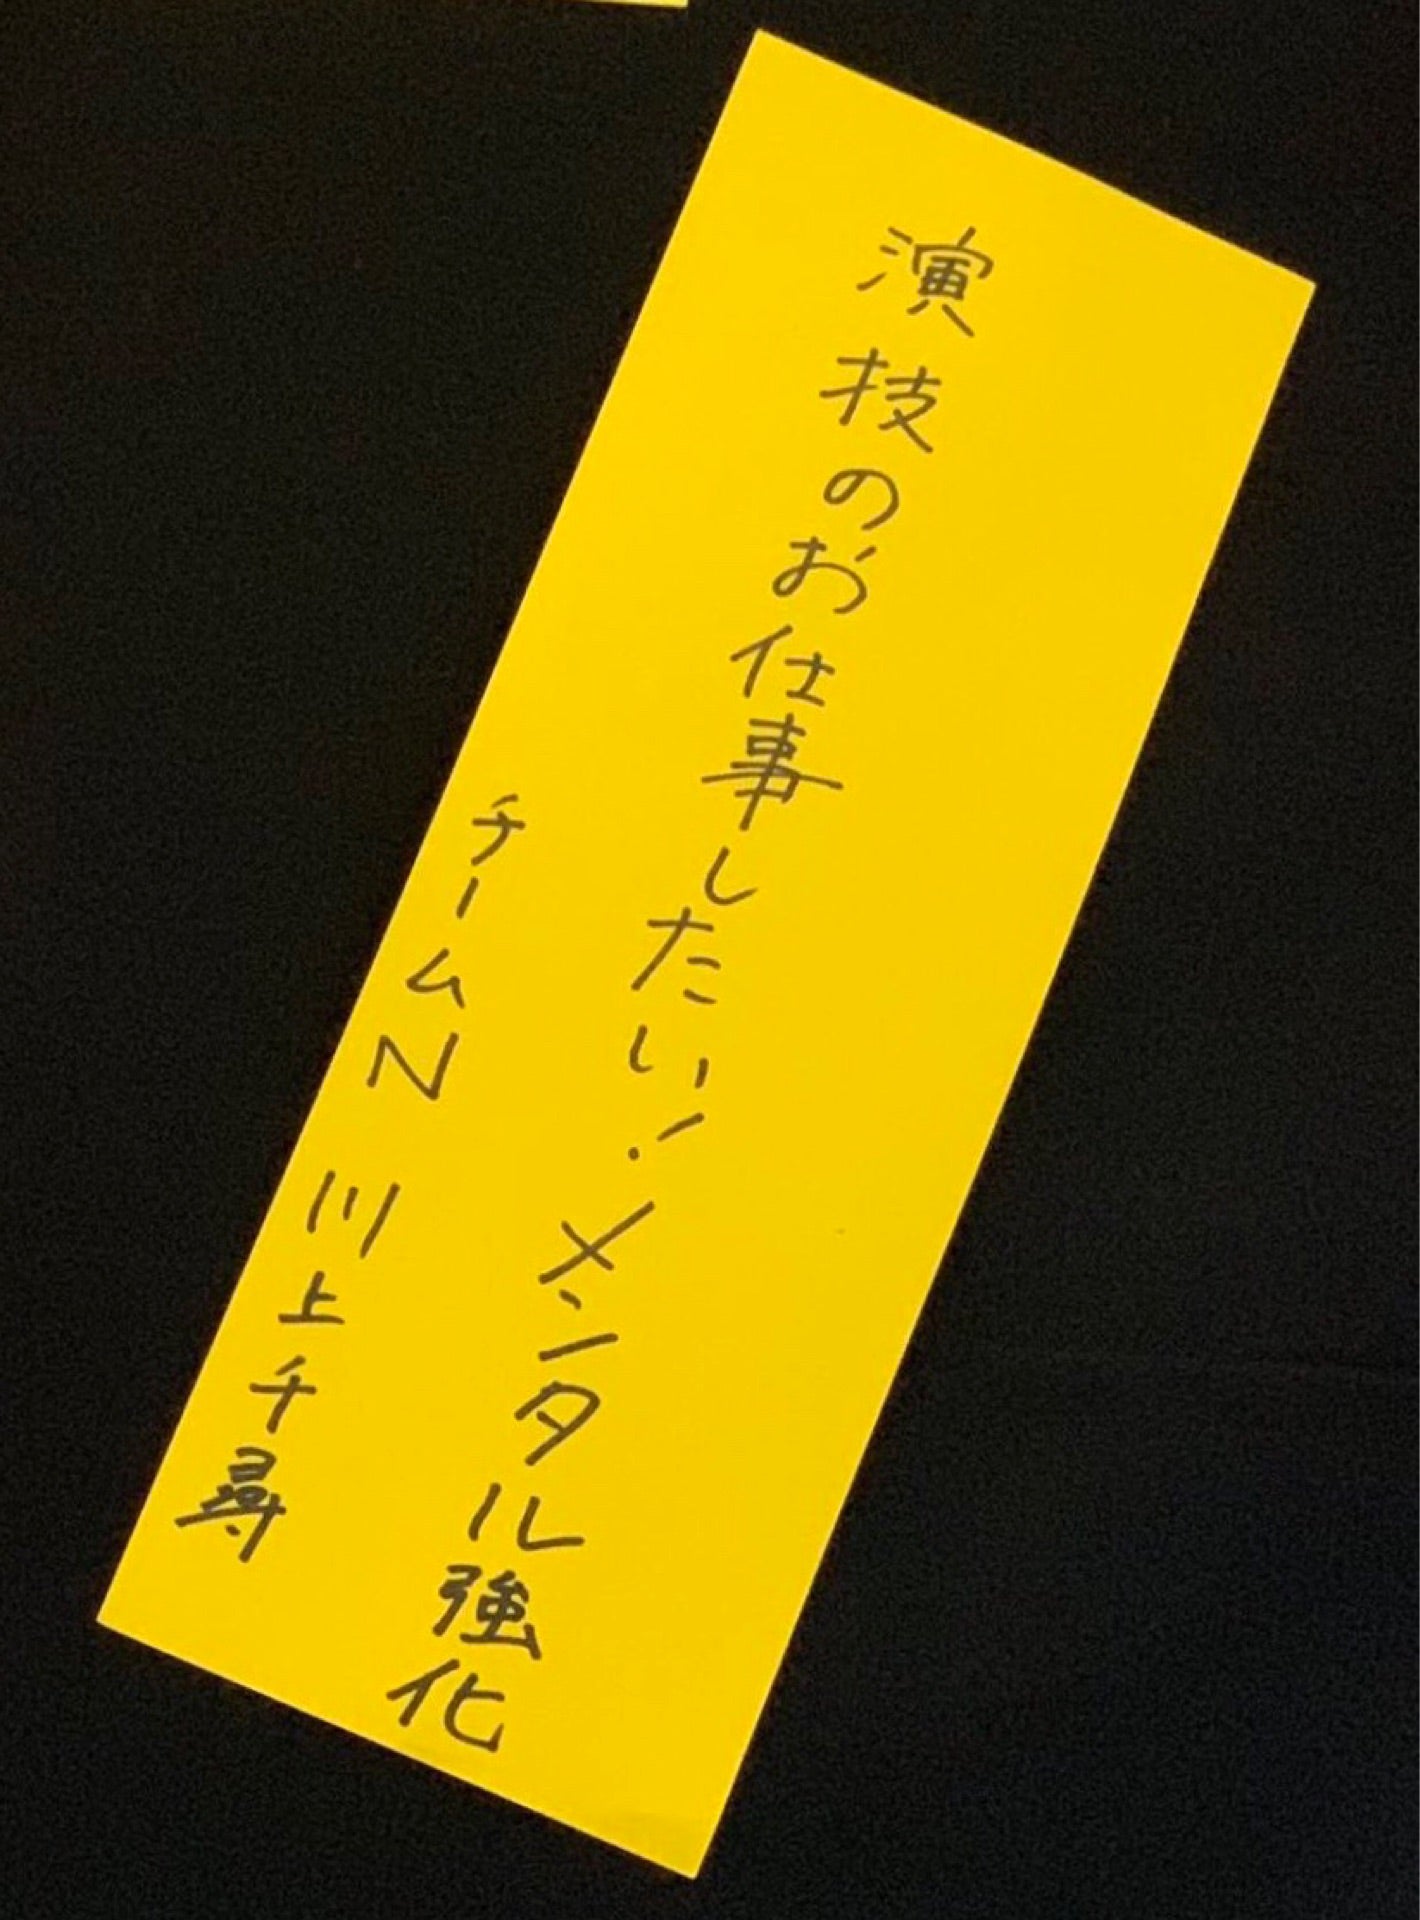 演技のお仕事したい!メンタル強化
チームN 川上千尋